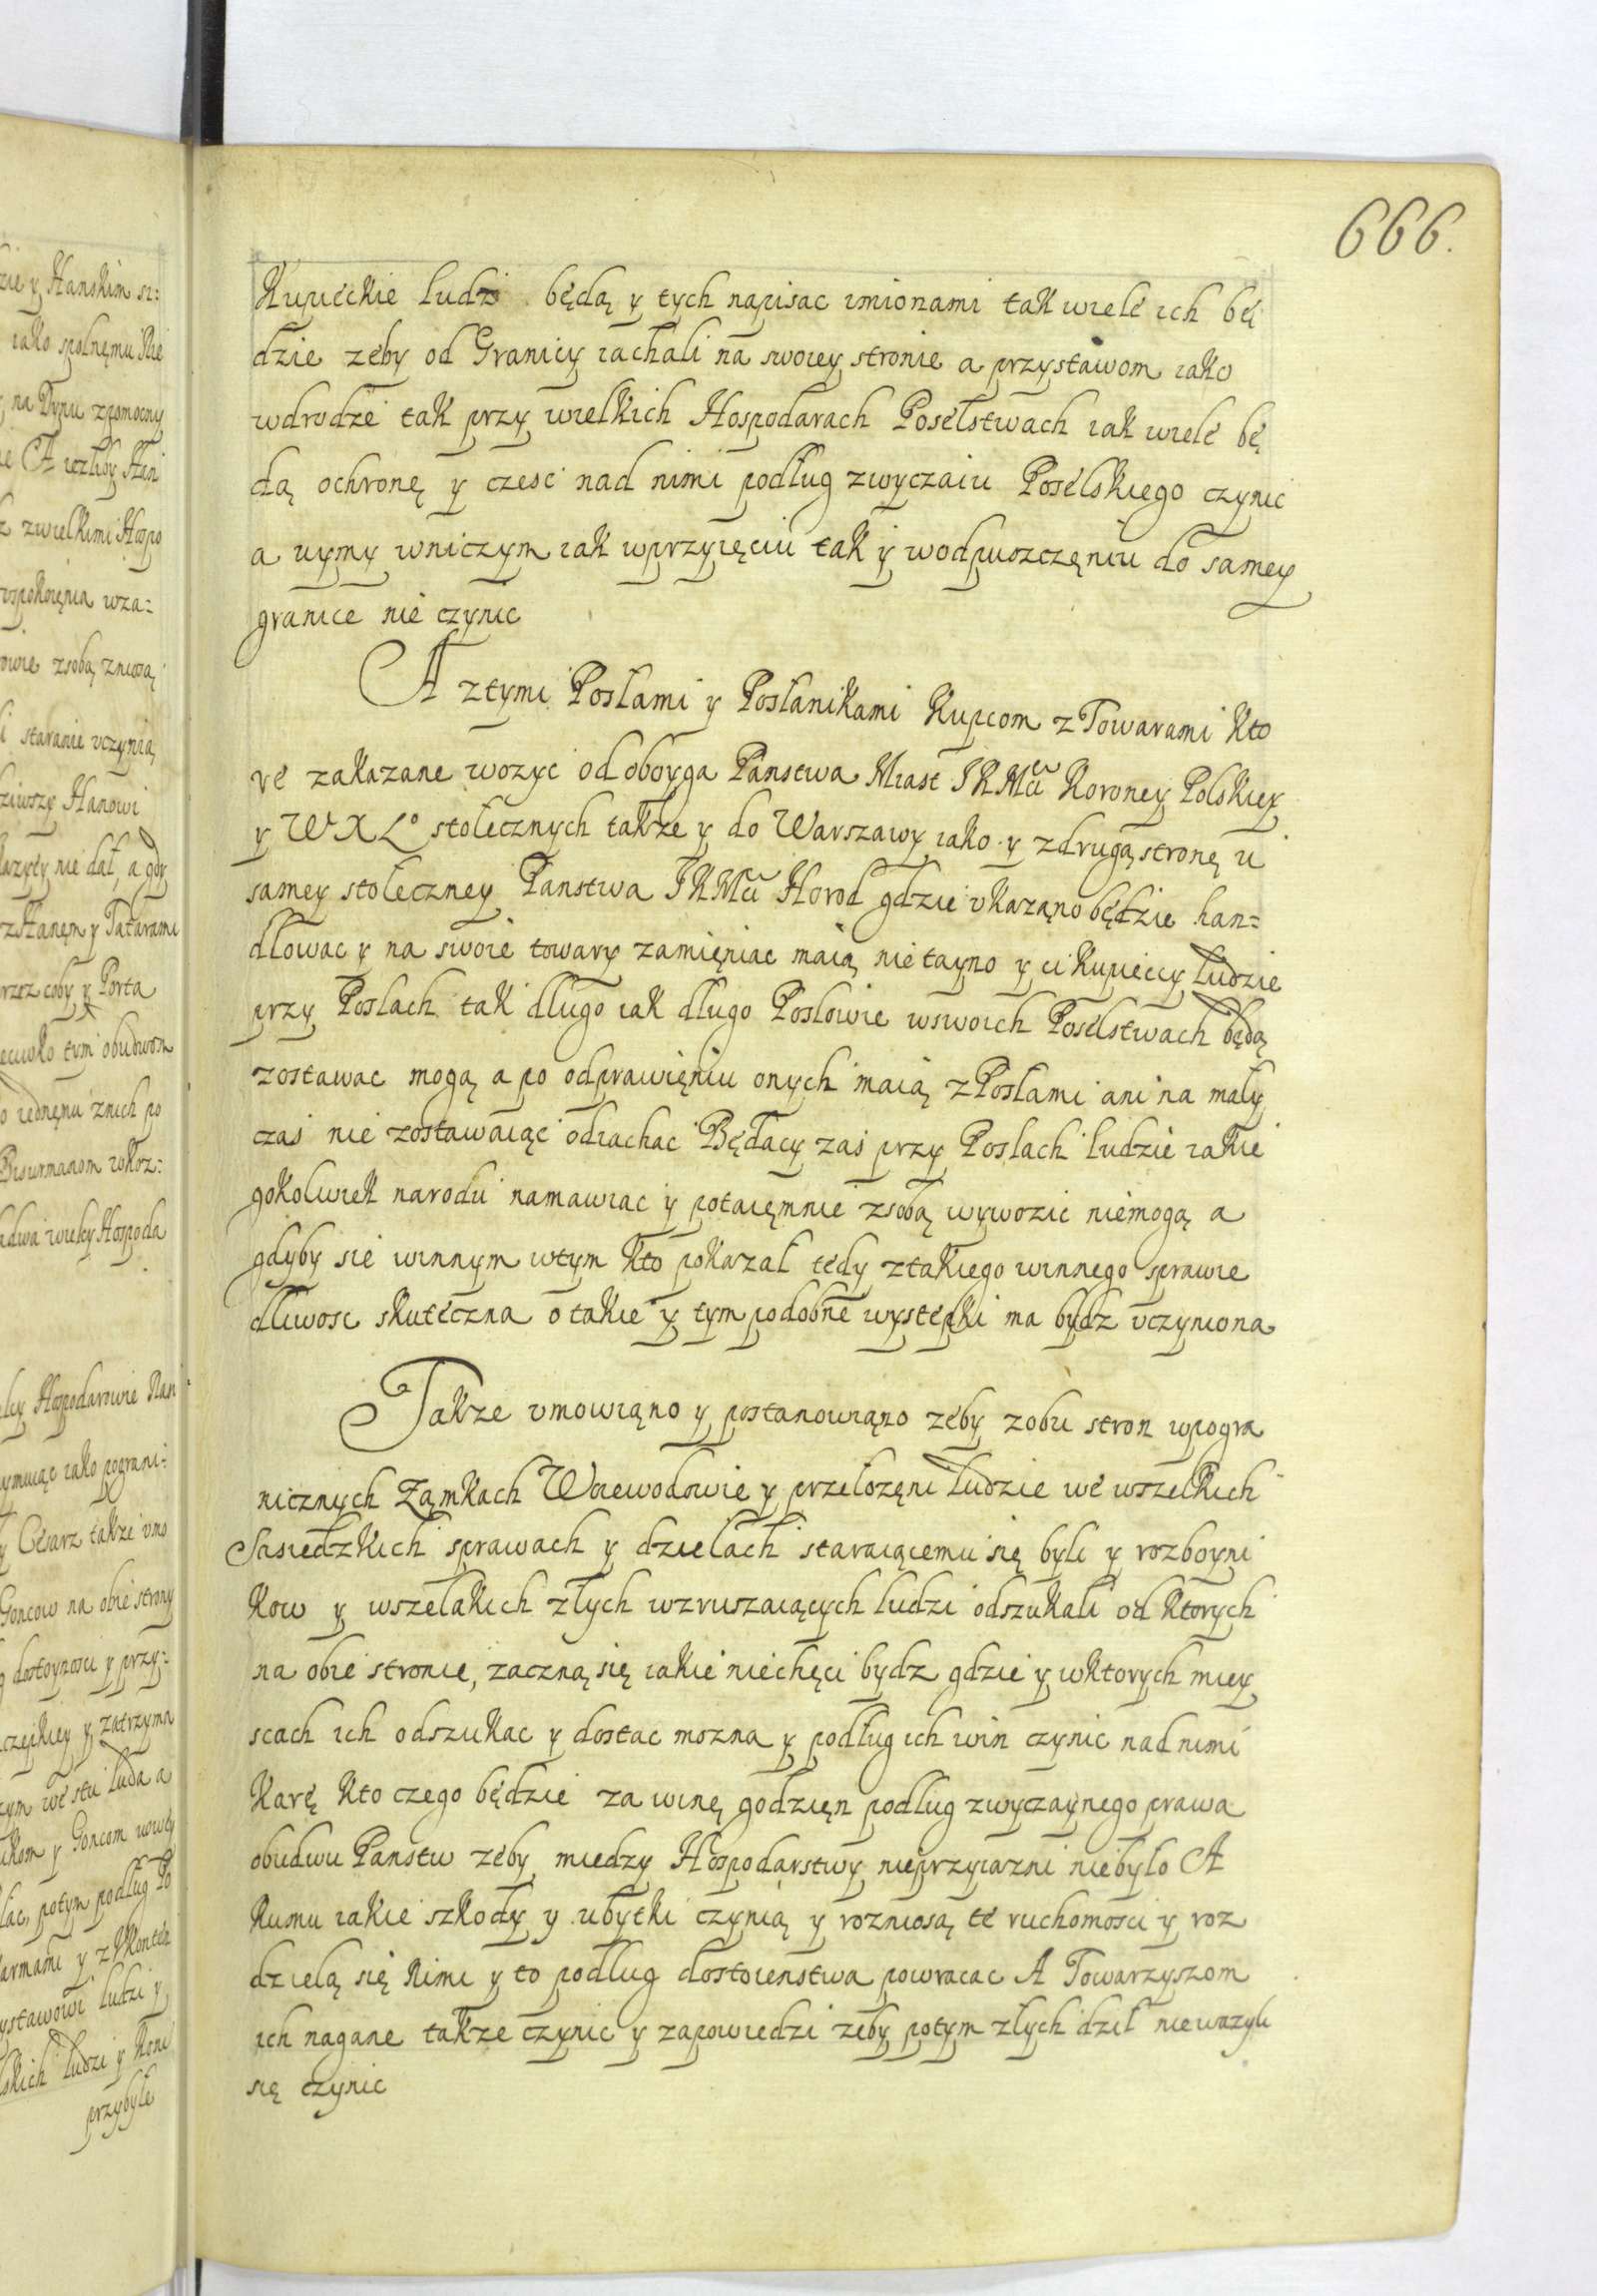 666.
Kupieckie ludzi będą y tych napisac imionami tak wiele ich bę
dzie zeby od Granicy iachali na swoiey stronie a przystawom iako
wdrodze tak przy wielkich Hospodarach Poselstwach iak wiele bę
dą ochronę y czesc nad nimi podług zwyczaiu Poselskiego czynic
a uymy wniczym iak wprzyięciu tak y wodpuszczęniu do samey
granice nie czynic
A ztymi Posłami y Posłanikami Kupcom z Towarami Kto
re zakazane wozyc od oboyga Panstwa Miast JKMci Koroney Polskiey
y WXLo stołecznych takze y do Warszawy iako y zdrugą stronę u
samey stołeczney Panstwa JKMci Horod gdzie vkaząno będzie han=
dlowac y na swoie towary zamięniac maią nie tayno y ci kupieccy ludzie
przy Posłach tak długo iak długo Posłowie wswoich Poselstwach będą
zostawac mogą a po odprawięniu onych maią z Posłami ani na mały
czas nie zostawaiąc odiachac Będący zas przy Posłach ludzie iakie
gokolwiek narodu namawiac y potaięmnie zsobą wywozic niemogą a
gdyby sie winnym wtym kto pokazał tedy ztakiego winnego sprawie
dliwosc skuteczna o takie y tym podobne wystepki ma bydz vczyniona
Takze vmowiąno y postanowiąno zeby zobu stron wpogra
nicznych Zamkach Woiewodowie y przełozęni ludzie we wszelkich
Sasiedzkich sprawach y dzielach staraiącemu się byli y rozboyni
kow y wszelakich złych wzruszaiących ludzi odszukali od ktorych
na obie stronie, zaczną się iakie niechęci bydz gdzie y wktorych miey
scach ich odszukac y dostac mozna y podług ich win czynic nad nimi
karę kto czego będzie za winę godzięn podług zwyczaynego prawa
obudwu Panstw zeby miedzy Hospodarstwy nieprzyiazni niebyło A
kumu iakie szkody y ubytki czynią y rozniosą te ruchomosci y roz
dzielą się nimi y to podług dostoienstwa powracac A Towarzyszom
ich nagane takze czynic y zapowiedzi zeby potym złych dził niewazyli
się czynic